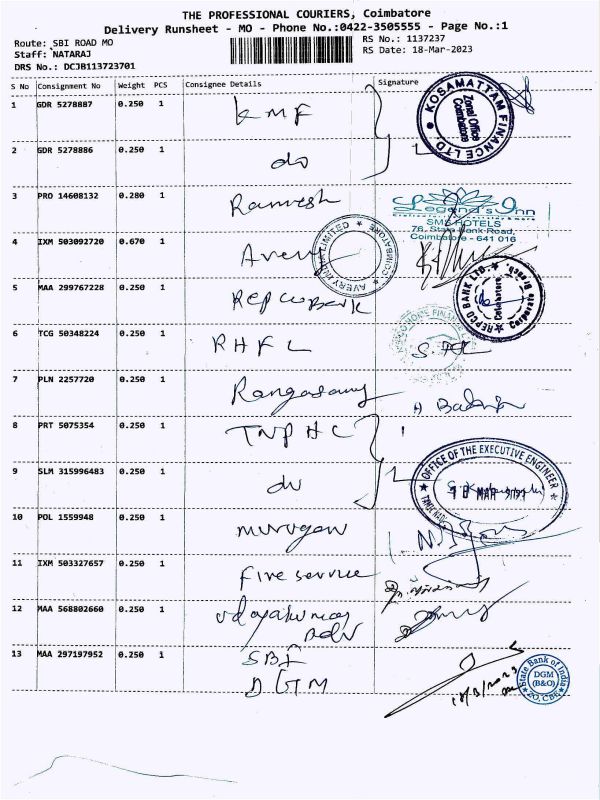 THE PROFESSIONAL COURIERS, Coimbatore
Delivery Runsheet - MO - Phone No.:0422-3505555 - Page No.:1
Route: SBI ROAD MO
Staff: NATARAJ
DRS No.: DCJB113723701
RS No.: 1137237
RS Date: 18-Mar-2023
S No Consignment No Weight PCS Consignee Details Signature
1 GDR 5278887 0.250 1 KMF
KOSAMATTAM FINANCE LTD. Zonal Office Coimbatore
2 GDR 5278886 0.250 1 do
3 PRO 14608132 0.280 1 Ramesh
Legend's Inn
SMS HOTELS
76, State Bank Road,
Coimbatore - 641 016
4 IXM 503092720 0.670 1 Avery
AVERY INDIA LIMITED COIMBATORE
5 MAA 299767228 0.250 1 Repco Bank
REPCO BANK LTD. Coimbatore Corporate Branch
6 TCG 50348224 0.250 1 RHFL
HOME FINANCE
7 PLN 2257720 0.250 1 Rangasamy
8 PRT 5075354 0.250 1 TNPHC
9 SLM 315996483 0.250 1 do
OFFICE OF THE EXECUTIVE ENGINEER
TAMIL NADU
MAR
10 POL 1559948 0.250 1 Murugan
11 IXM 503327657 0.250 1 Fire service
12 MAA 568802660 0.250 1
13 MAA 297197952 0.250 1 SBI
DGM
18/3/2023
State Bank of India
DGM
(B&O)
ZO, CBE